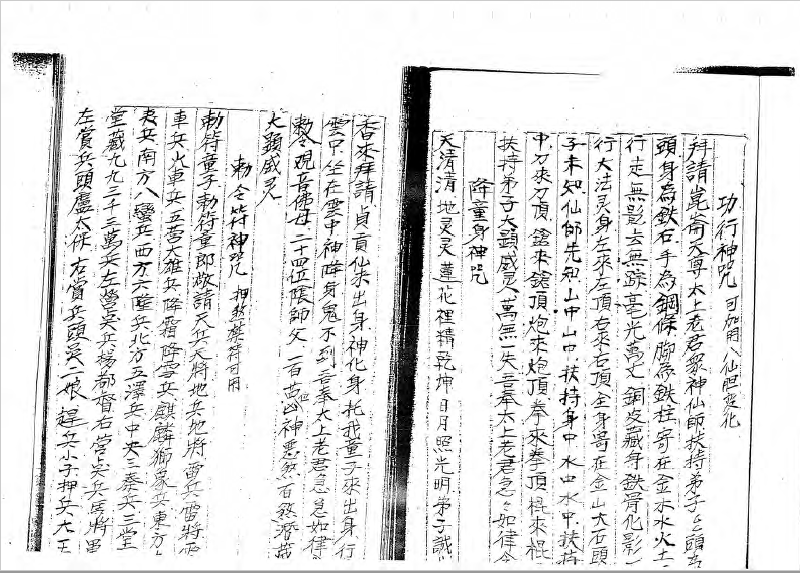 功行神咒 可加用八仙胆变化
拜請崑崙天尊太上老君眾神仙師扶持弟子々頭為
頭身為鉄石手為鋼條腳為鉄柱寄在金木水火土
行走無影去無踪毫光萬丈銅皮藏身鉄骨化影
行大法灵身左來左頂右來右頂全身寄在金山大石頭
子未知仙師先知山中山中扶持身中水中水中扶持
中刀來刀頂鎗來鎗頂炮來炮頂拳來拳頂棍來棍
扶持弟子大顕威灵萬無一失吾奉太上老君急々如律令
降童身神咒
天清清地灵灵蓮花裡精乾坤日月照光明弟子誠
香來拜請貞言仙來出身神化身托我童子來出身行
雲中坐在雲中神降身鬼不到吾奉太上老君急急如律
敕令观音佛母二十四位陰師父一百萬神惡煞百發潛藏
大顕威灵
勅令符神咒 押煞禁符可用
勅符童子勅符童郎敢請天兵天將地兵地將雷兵雷將
車兵火車兵五营大雄兵降霜降雪兵麒麟獅象兵東方
夷兵南方八蠻兵西方六陸兵北方五澤兵中央三秦兵三堂
堂藏九九三千三萬兵左營吳兵楊都督右营兵馬將
左賞兵頭盧太保右賞兵頭吳二娘趕兵小子押兵大王